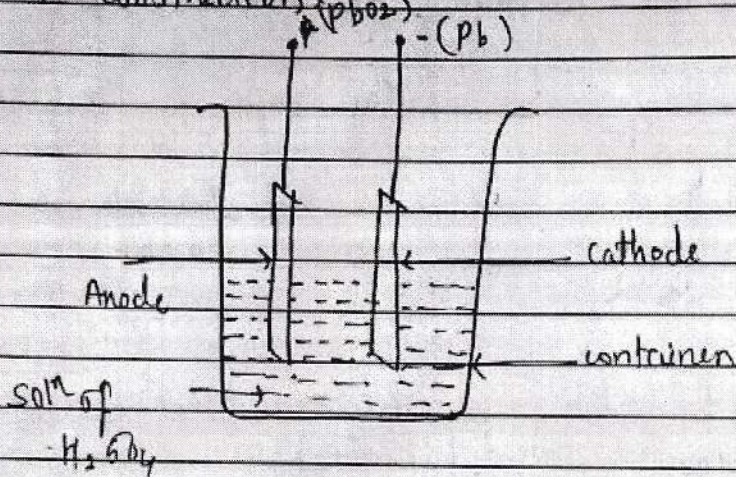 (PbO2)
-(Pb)
cathode
Anode
container
Solⁿ of
H₂SO₄